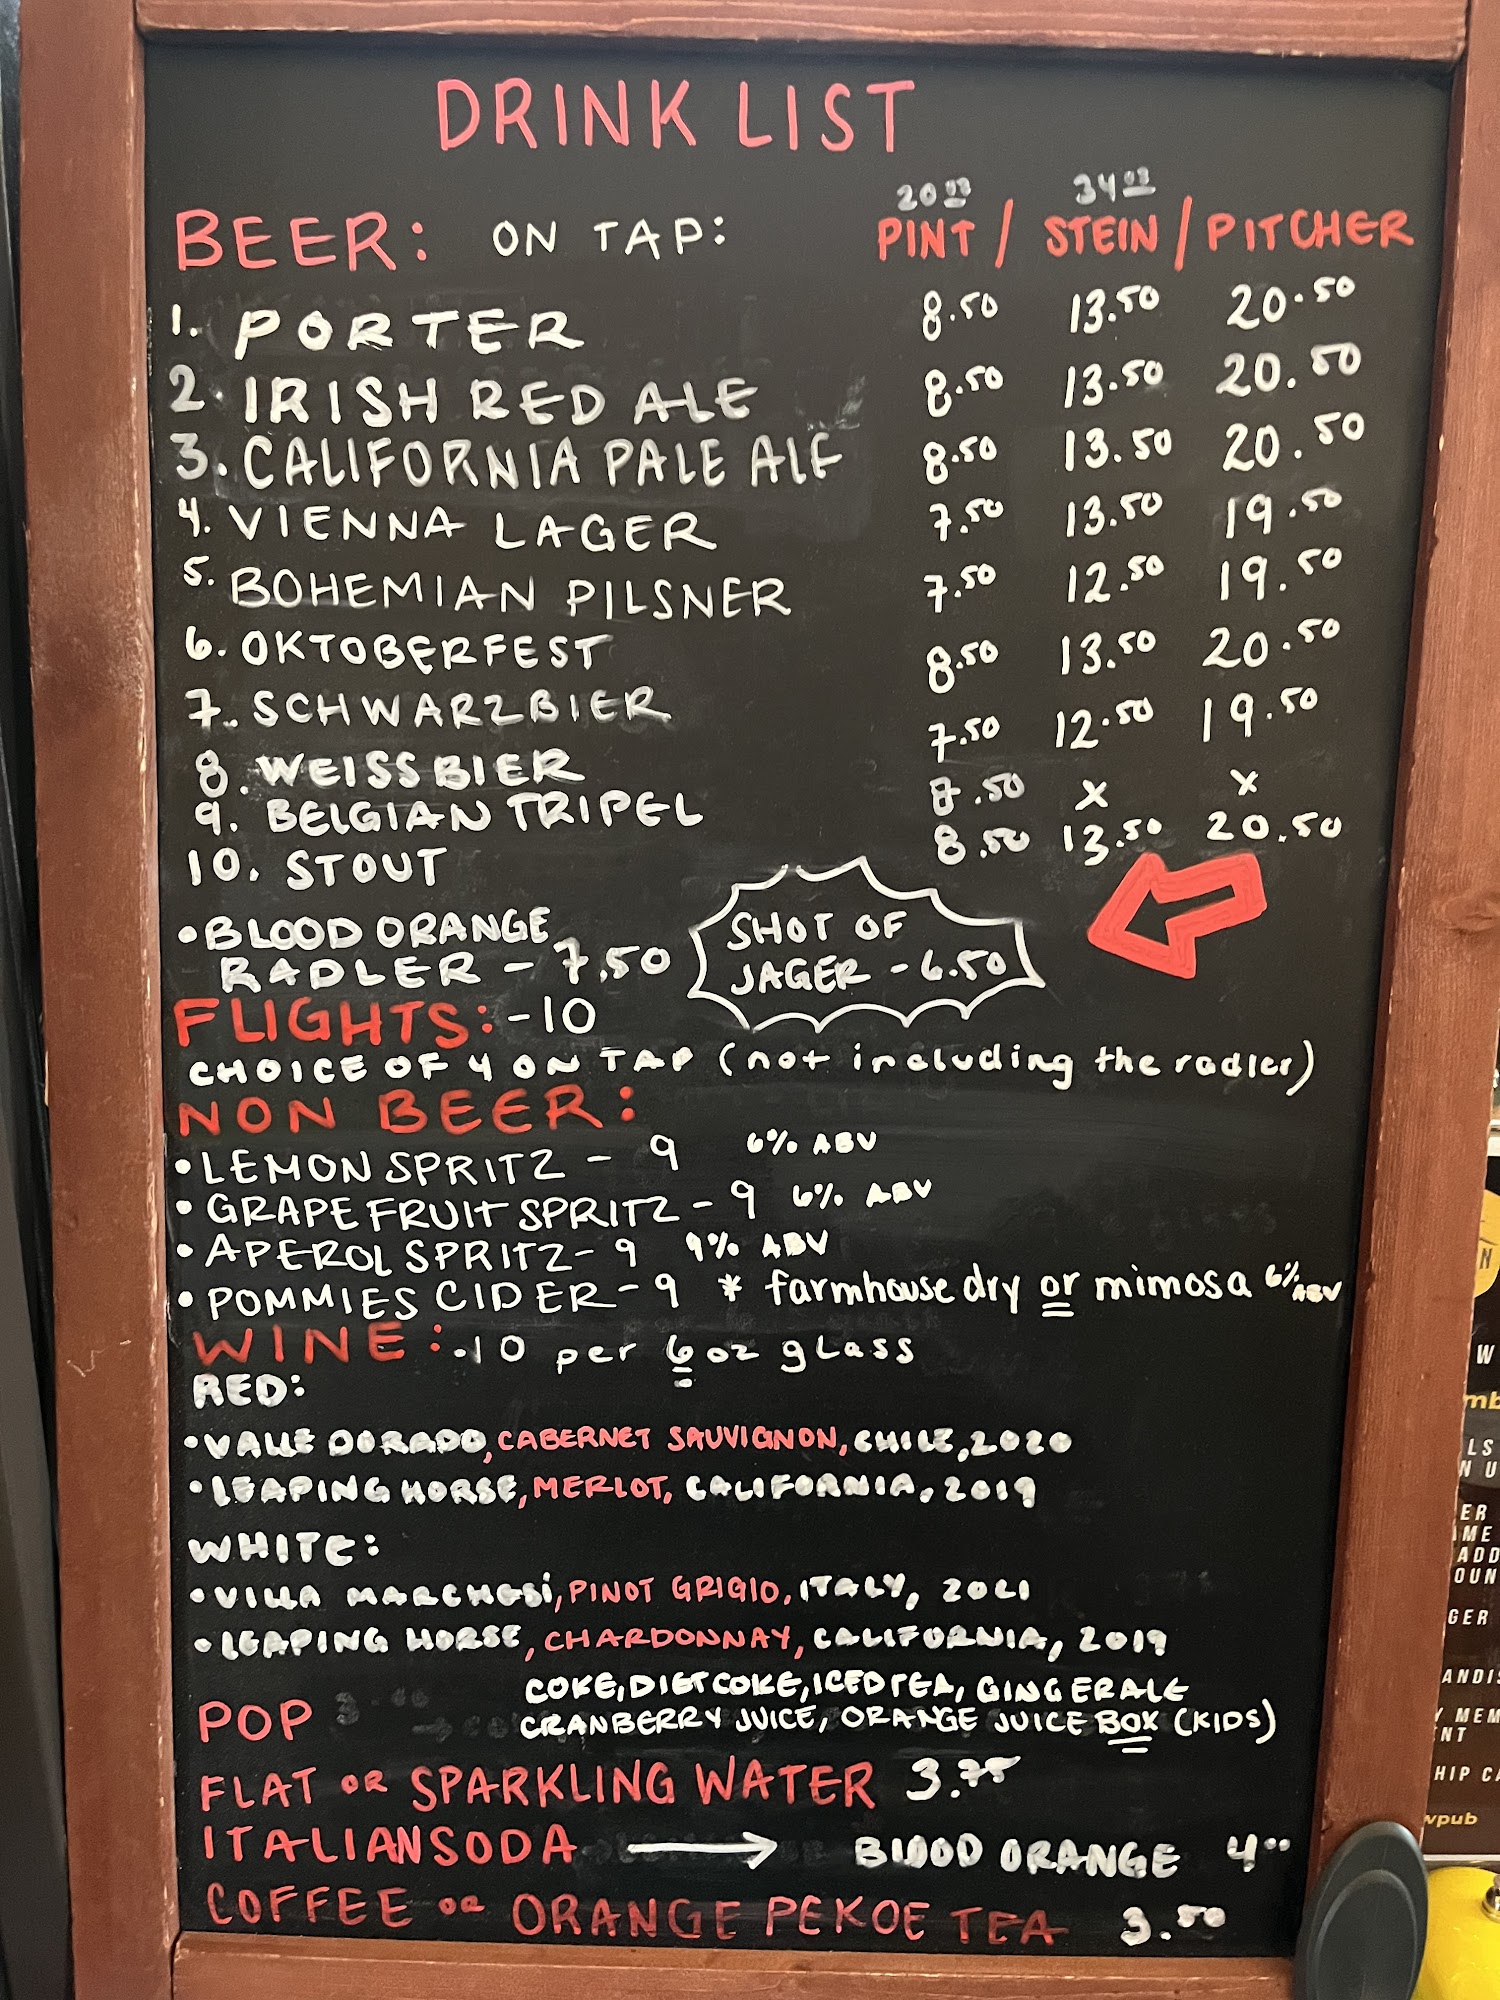 DRINK LIST
20 oz 34 oz
BEER: ON TAP: PINT / STEIN / PITCHER
1. PORTER 8.50 13.50 20.50
2. IRISH RED ALE 8.50 13.50 20.50
3. CALIFORNIA PALE ALE 8.50 13.50 20.50
4. VIENNA LAGER 7.50 13.50 19.50
5. BOHEMIAN PILSNER 7.50 12.50 19.50
6. OKTOBERFEST 8.50 13.50 20.50
7. SCHWARZBIER 7.50 12.50 19.50
8. WEISSBIER
9. BELGIAN TRIPEL 8.50 x x
10. STOUT 8.50 13.50 20.50
• BLOOD ORANGE
RADLER - 7.50
SHOT OF
JAGER - 6.50
FLIGHTS: - 10
CHOICE OF 4 ON TAP (not including the radler)
NON BEER:
• LEMON SPRITZ - 9 6% ABV
• GRAPEFRUIT SPRITZ - 9 6% ABV
• APEROL SPRITZ - 9 9% ABV
• POMMIES CIDER - 9 * farmhouse dry or mimosa 6% ABV
WINE: - 10 per 6 oz glass
RED:
• VALLE DORADO, CABERNET SAUVIGNON, CHILE, 2020
• LEAPING HORSE, MERLOT, CALIFORNIA, 2019
WHITE:
• VILLA MARCHESi, PINOT GRIGIO, ITALY, 2021
• LEAPING HORSE, CHARDONNAY, CALIFORNIA, 2019
POP COKE, DIET COKE, ICED TEA, GINGERALE
CRANBERRY JUICE, ORANGE JUICE BOX (KIDS)
FLAT OR SPARKLING WATER 3.75
ITALIAN SODA → BLOOD ORANGE 4.00
COFFEE OR ORANGE PEKOE TEA 3.50